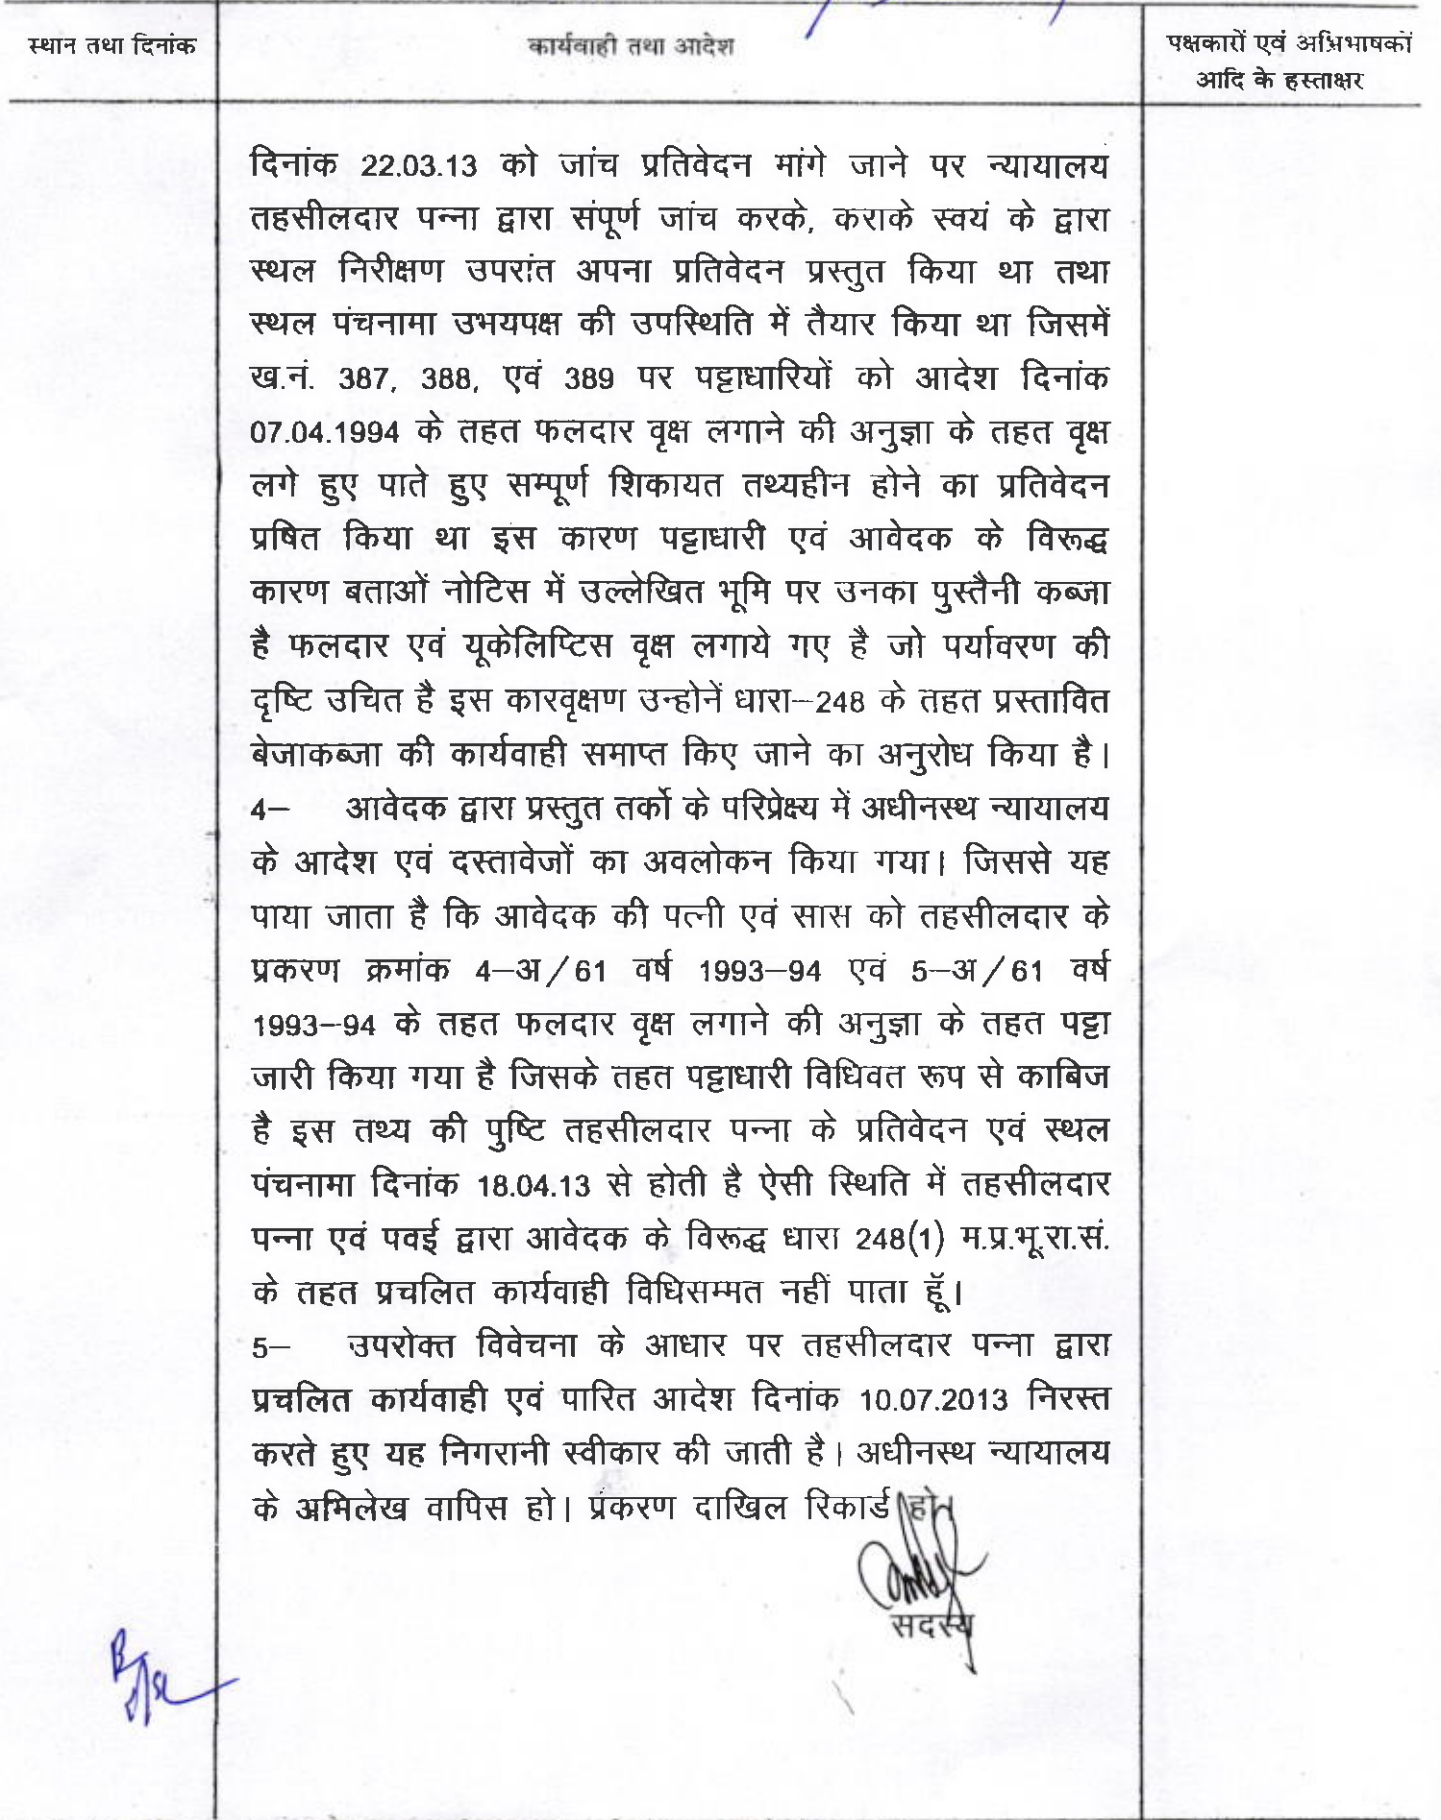 स्थान तथा दिनांक
कार्यवाही तथा आदेश
पक्षकारों एवं अभिभाषकों
आदि के हस्ताक्षर
दिनांक 22.03.13 को जांच प्रतिवेदन मांगे जाने पर न्यायालय
तहसीलदार पन्ना द्वारा संपूर्ण जांच करके, कराके स्वयं के द्वारा
स्थल निरीक्षण उपरांत अपना प्रतिवेदन प्रस्तुत किया था तथा
स्थल पंचनामा उभयपक्ष की उपस्थिति में तैयार किया था जिसमें
ख.नं. 387, 388, एवं 389 पर पट्टाधारियों को आदेश दिनांक
07.04.1994 के तहत फलदार वृक्ष लगाने की अनुज्ञा के तहत वृक्ष
लगे हुए पाते हुए सम्पूर्ण शिकायत तथ्यहीन होने का प्रतिवेदन
प्रषित किया था इस कारण पट्टाधारी एवं आवेदक के विरूद्ध
कारण बताओं नोटिस में उल्लेखित भूमि पर उनका पुस्तैनी कब्जा
है फलदार एवं यूकेलिप्टिस वृक्ष लगाये गए है जो पर्यावरण की
दृष्टि उचित है इस कारवृक्षण उन्होनें धारा–248 के तहत प्रस्तावित
बेजाकब्जा की कार्यवाही समाप्त किए जाने का अनुरोध किया है।
4– आवेदक द्वारा प्रस्तुत तर्को के परिप्रेक्ष्य में अधीनस्थ न्यायालय
के आदेश एवं दस्तावेजों का अवलोकन किया गया। जिससे यह
पाया जाता है कि आवेदक की पत्नी एवं सास को तहसीलदार के
प्रकरण क्रमांक 4–अ/61 वर्ष 1993–94 एवं 5–अ/61 वर्ष
1993–94 के तहत फलदार वृक्ष लगाने की अनुज्ञा के तहत पट्टा
जारी किया गया है जिसके तहत पट्टाधारी विधिवत रूप से काबिज
है इस तथ्य की पुष्टि तहसीलदार पन्ना के प्रतिवेदन एवं स्थल
पंचनामा दिनांक 18.04.13 से होती है ऐसी स्थिति में तहसीलदार
पन्ना एवं पवई द्वारा आवेदक के विरूद्ध धारा 248(1) म.प्र.भू.रा.सं.
के तहत प्रचलित कार्यवाही विधिसम्मत नहीं पाता हॅू।
5– उपरोक्त विवेचना के आधार पर तहसीलदार पन्ना द्वारा
प्रचलित कार्यवाही एवं पारित आदेश दिनांक 10.07.2013 निरस्त
करते हुए यह निगरानी स्वीकार की जाती है। अधीनस्थ न्यायालय
के अभिलेख वापिस हो। प्रकरण दाखिल रिकार्ड हो।
सदस्य